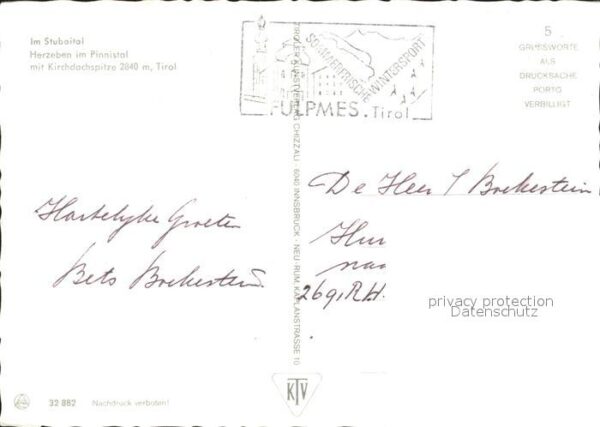 Im Stubaital
Herzeben im Pinnistal
mit Kirchdachspitze 2840 m, Tirol
SOMMERFRISCHE WINTERSPORT
FULPMES. Tirol
5
GRUSSWORTE
ALS
DRUCKSACHE
PORTO
VERBILLIGT
TIROLER KUNSTVERLAG CHIZZALI · 6040 INNSBRUCK - NEU-RUM, KAPLANSTRASSE 10
Hartelyke Groeten
Bets Boekestein
De Heer J Boekestein
2691RH.
privacy protection
Datenschutz
KTV
32 882 Nachdruck verboten!